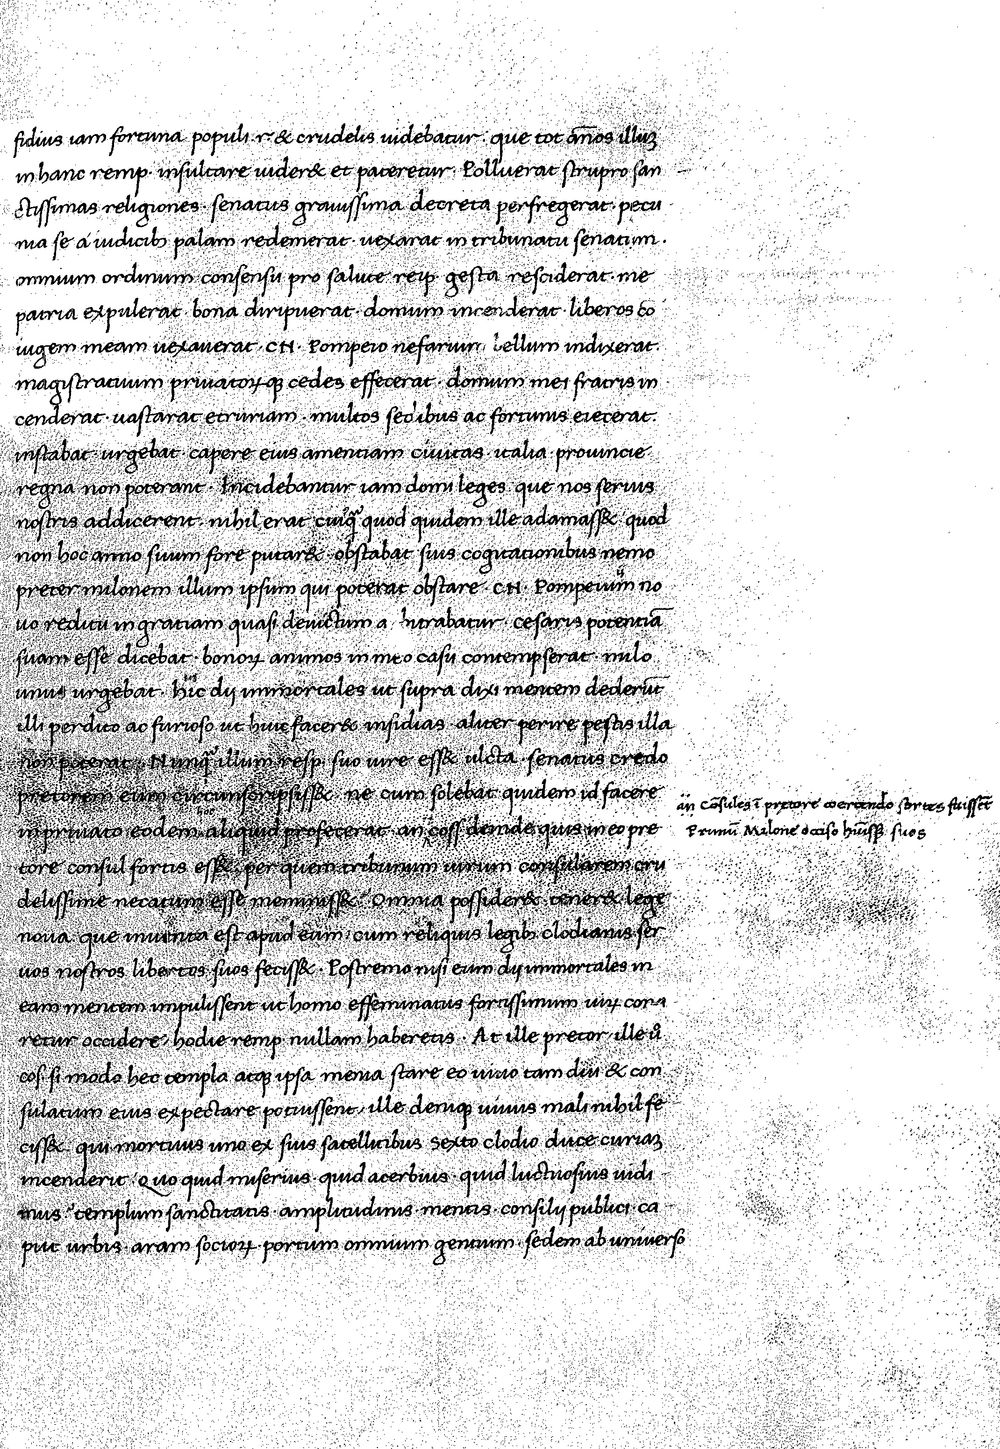 fidius iam fortuna populi .r. & crudelis uidebatur . que tot an̄os illuꝫ
in hanc remp. insultare uider& et pateretur . Polluerat strupro san
ctissimas religiones . senatus grauissima decreta perfregerat . pecu
nia se a iudicib; palam redemerat . uexarat in tribunatu senatum .
omnium ordinum consensu pro salute reip. gesta resciderat . me
patria expulerat . bona diripuerat . domum incenderat . liberos cō
iugem meam uexauerat . CN . Pompeio nefarium bellum indixerat .
magistratuum priuatoꝝqꝫ cedes effecerat . domum mei fratris in
cenderat . uastarat etruriam . multos sedibus ac fortunis eiecerat .
instabat . urgebat . capere eius amentiam ciuitas . italia . prouincie
regna non poterant . Incidebantur iam domi leges que nos seruis
nostris addicerent . nihil erat cuiq̄ quod quidem ille adamass& quod
non hoc anno suum fore putar& . obstabat suis cogitationibus nemo
preter milonem illum ipsum qui poterat obstare . CN . Pompeium no
uo reditu in gratiam quasi deuictum a bitrabatur . cesaris potentiā
suam esse dicebat . bonoꝝ animos in meo casu contempserat . milo
unus urgebat . hic dij immortales ut supra dixi mentem dederūt
illi perdito ac furioso ut huic facer& insidias . aliter perire pestis illa
non poterat . Nunq̄ illum resp. suo iure ess& ulcta . senatus credo
pretorem eum circunscripsiss& . ne cum solebat quidem id facere
in priuato eodem aliquid profecerat . an coss deinde quis in eo pre
tore consul fortis ess& per quem tribunum uirum consularem cru
delissime necatum esse meminiss& . Omnia possider& . tener& lege
noua que inuenta est apud eum cum reliquis legib; clodianis ser
uos nostros libertos suos feciss& . Postremo nisi eum dij immortales in
eam mentem impulissent ut homo effeminatus fortissimum uiꝝ cona
retur occidere / hodie remp. nullam haberetis . At ille pretor / ille ū
cos. si modo hec templa atqꝫ ipsa menia stare eo uiuo tam diu & con
sulatum eius expectare potuissent / ille deniqꝫ uiuus mali nihil fe
ciss& . qui mortuus uno ex suis satellitibus Sexto clodio duce curiaꝫ
incenderit . Quo quid miserius . quid acerbius . quid luctuosius uidi
mus . templum sanctitatis . amplitudinis . mentis . consilij publici . ca
put urbis . aram socioꝝ . portum omnium gentium . sedem ab uniuerso
an Cōsules ī pretore coercendo fortes fuissēt
Primū Milone occiso huiss& suos